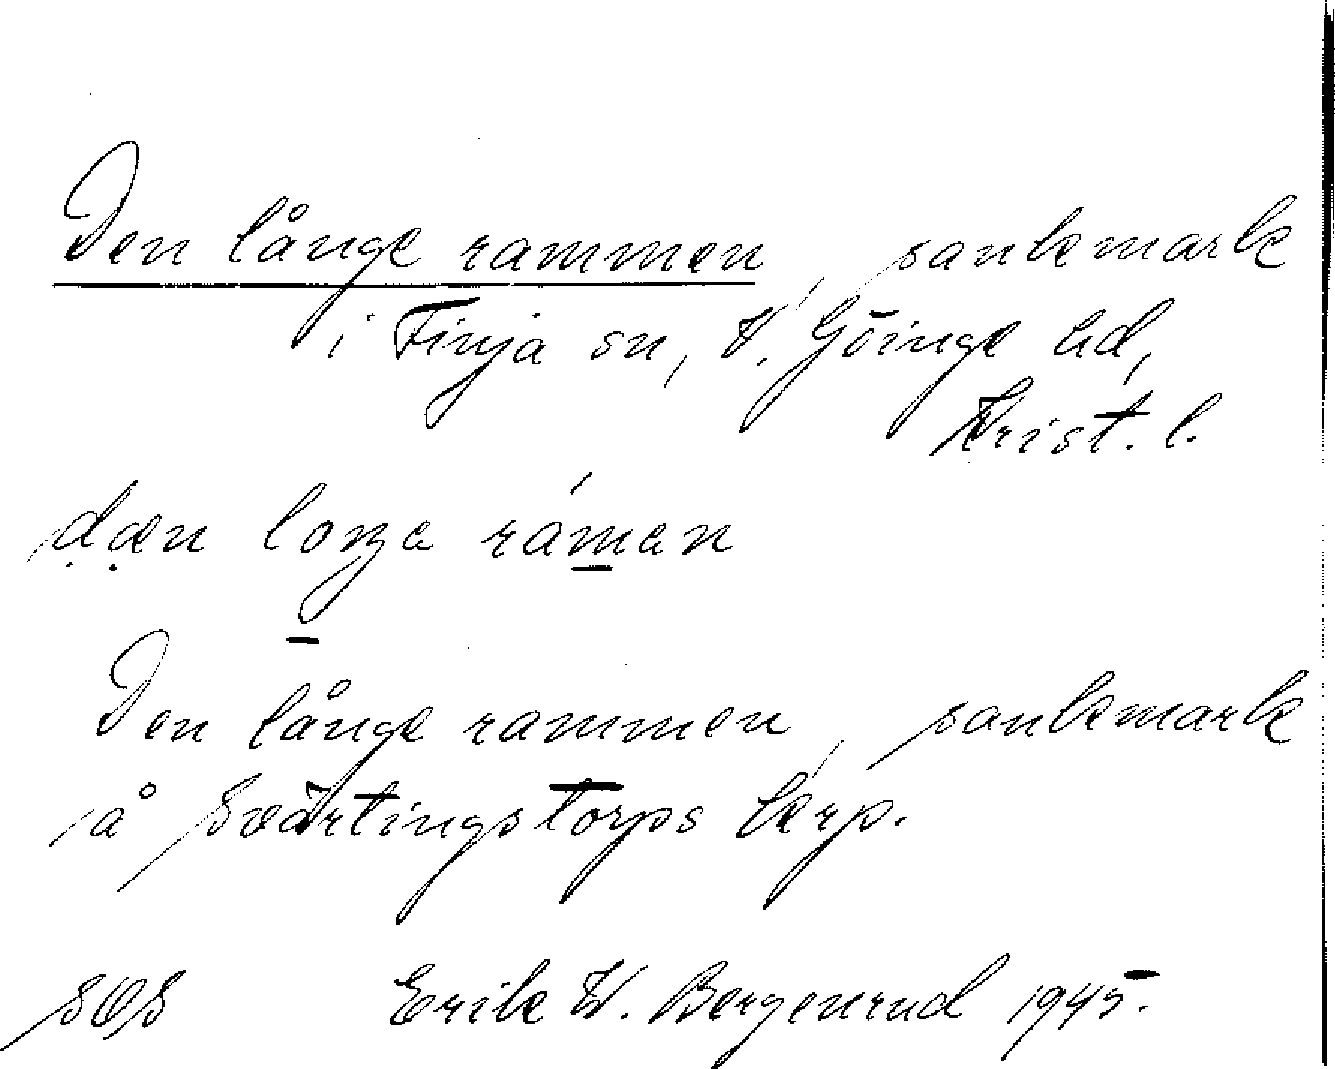 Den långe rammen, sankmark
i Finja sn, V. Göinge hd,
Krist. l.
dæn loŋa ráman
Den långe rammen, sankmark
å Svärtingstorps krp.
Erik W. Bergenrud 1945.